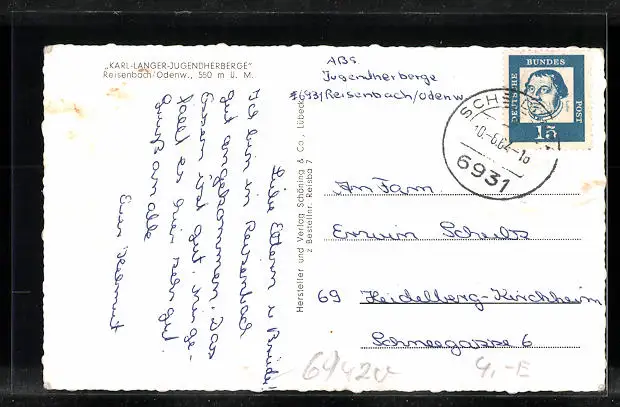 „KARL-LANGER-JUGENDHERBERGE"
Reisenbach/Odenw., 550 m ü. M.
Liebe Eltern u. Brüder!
Ich bin in Reisenbach
gut angekommen. Das
Essen ist gut. Mir ge-
fällt es hier sehr gut.
Gruß an alle
Euer Helmut
Hersteller und Verlag Schöning & Co., Lübeck
Bestellnr. Reisba 7
ABS.
Jugendherberge
6931 Reisenbach/Odenw.
DEUTSCHE
BUNDES
POST
15
10.-6.64-1
6931
An Fam.
Erwin Scheib
69 Heidelberg-Kirchheim
Schneegasse 6
69420
4,-E